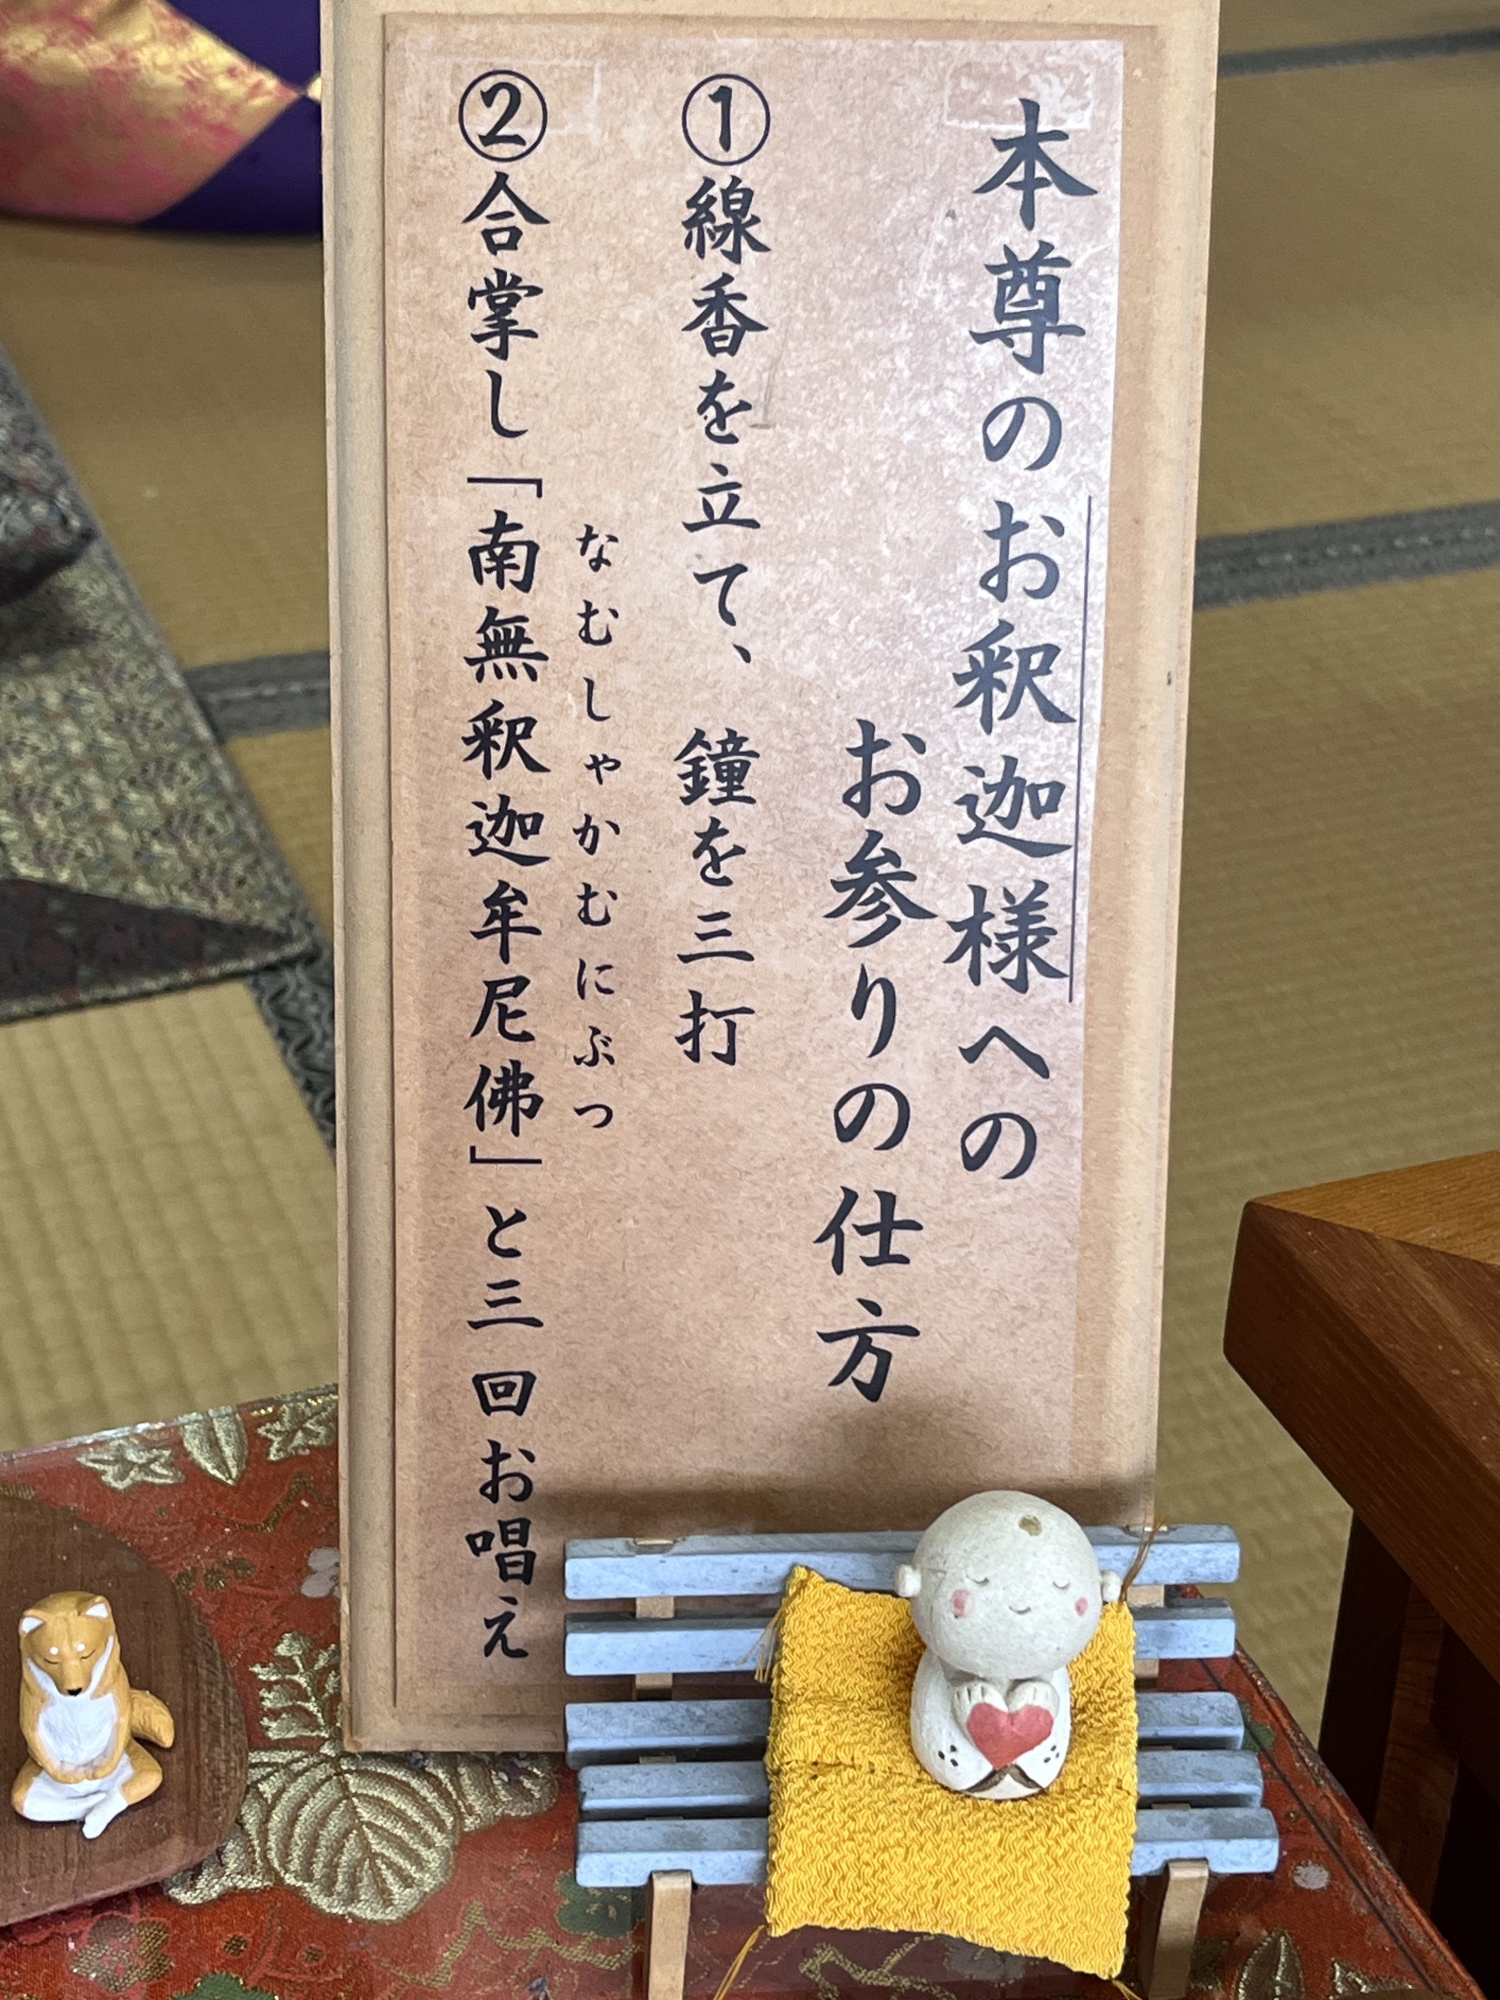 本尊のお釈迦様への
お参りの仕方
①線香を立て、鐘を三打
なむしゃかむにぶつ
②合掌し「南無釈迦牟尼佛」と三回お唱え